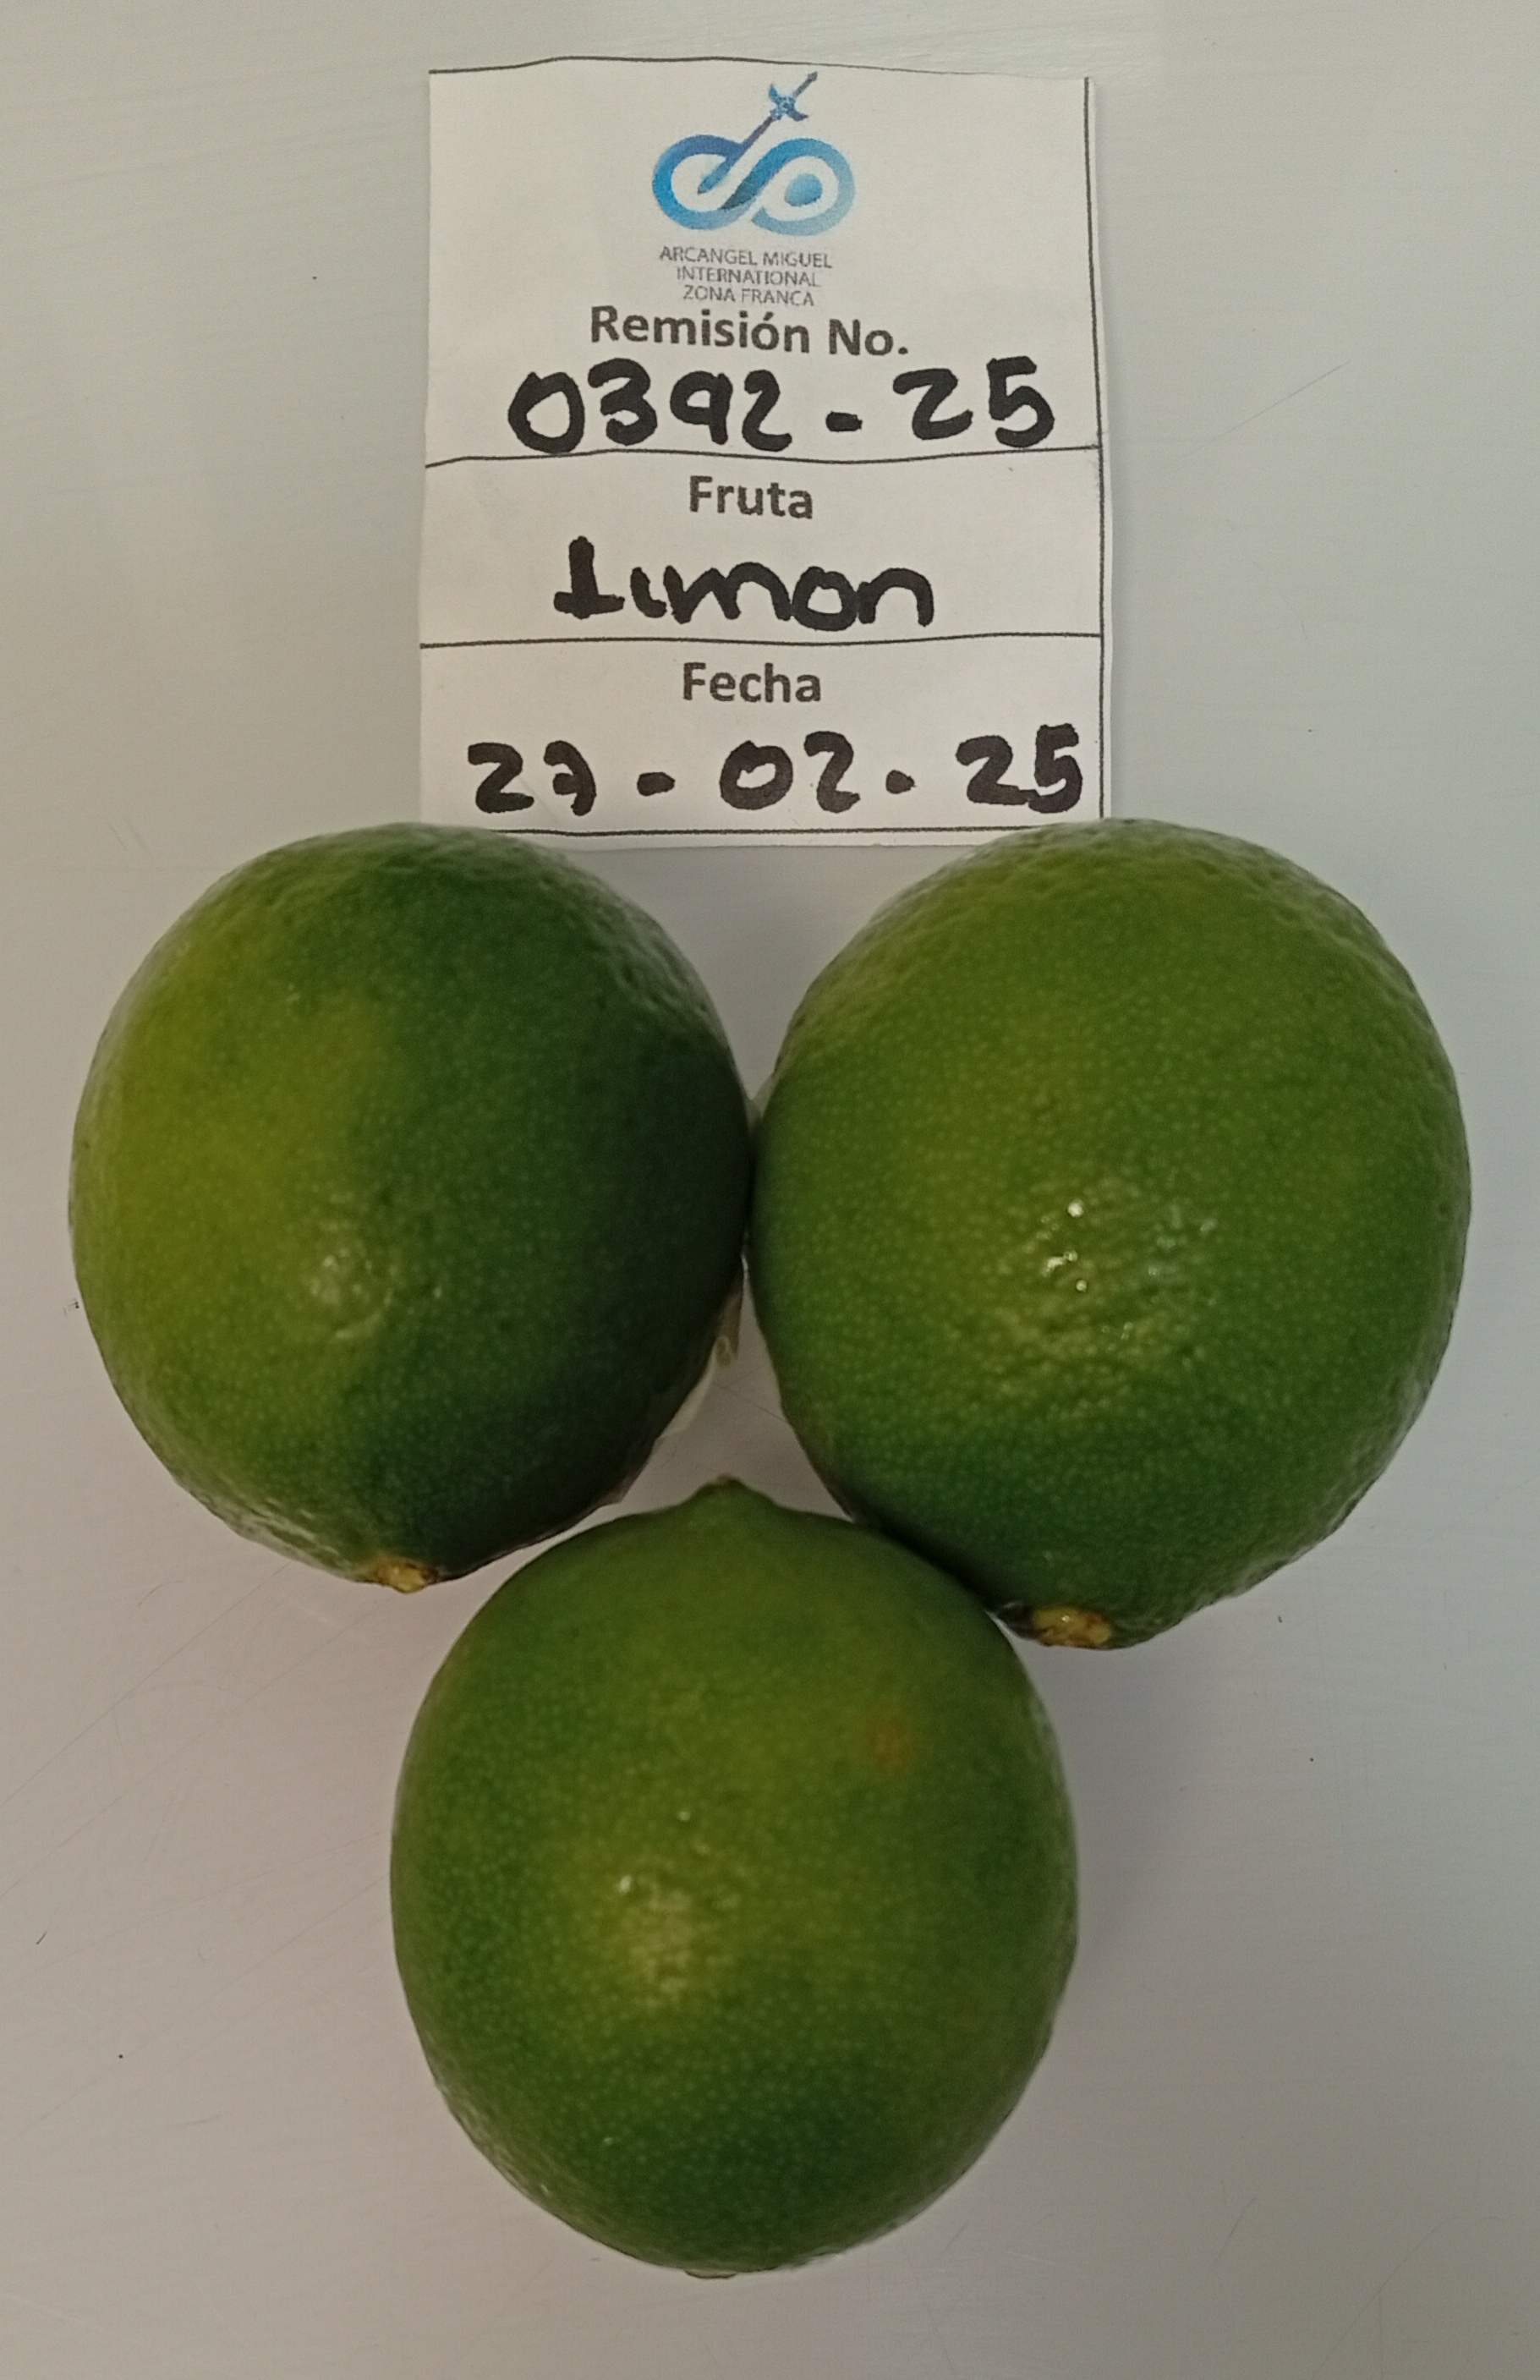 ARCANGEL MIGUEL
INTERNATIONAL
ZONA FRANCA
Remisión No.
0392-25
Fruta
Limon
Fecha
27-02-25